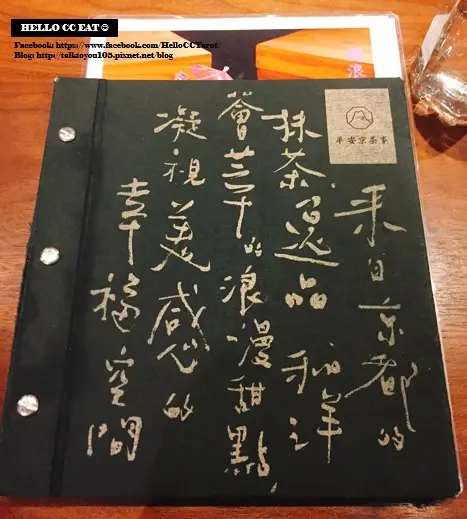 HELLO CC EAT☺
Facebook: https://www.facebook.com/HelloCCTarot/
Blog: http://talktoyou105.pixnet.net/blog
浪
平安京茶事
來自京都的
抹茶逸品 和洋
薈萃的浪漫甜點,
凝視美感的
幸福空間